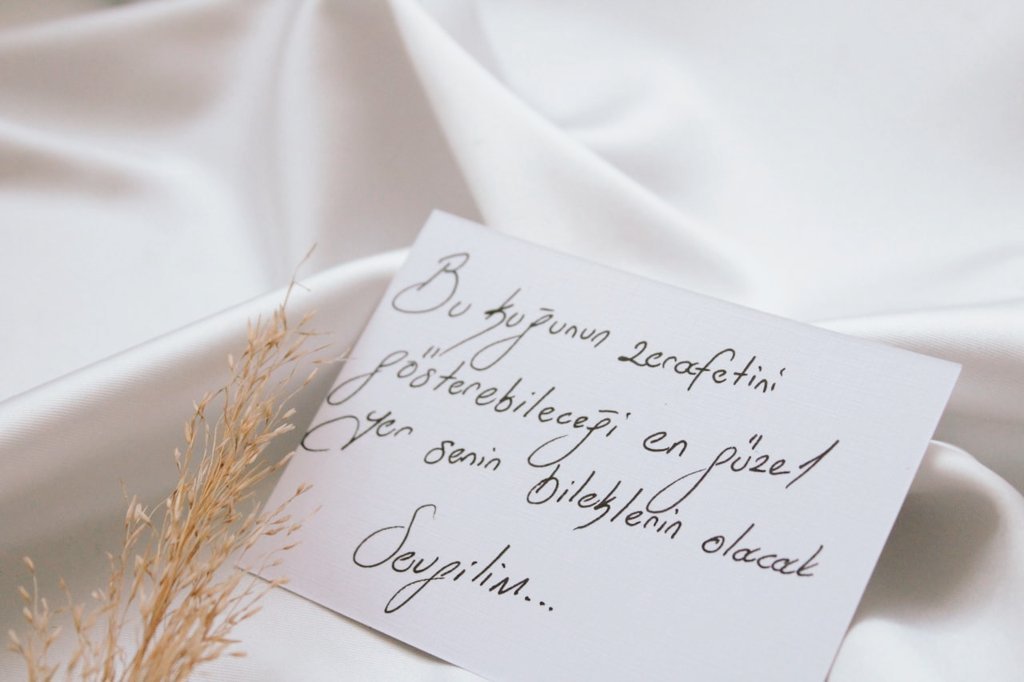 Bu kuğunun zerafetini
gösterebileceği en güzel
yer senin bileklerin olacak
Sevgilim...